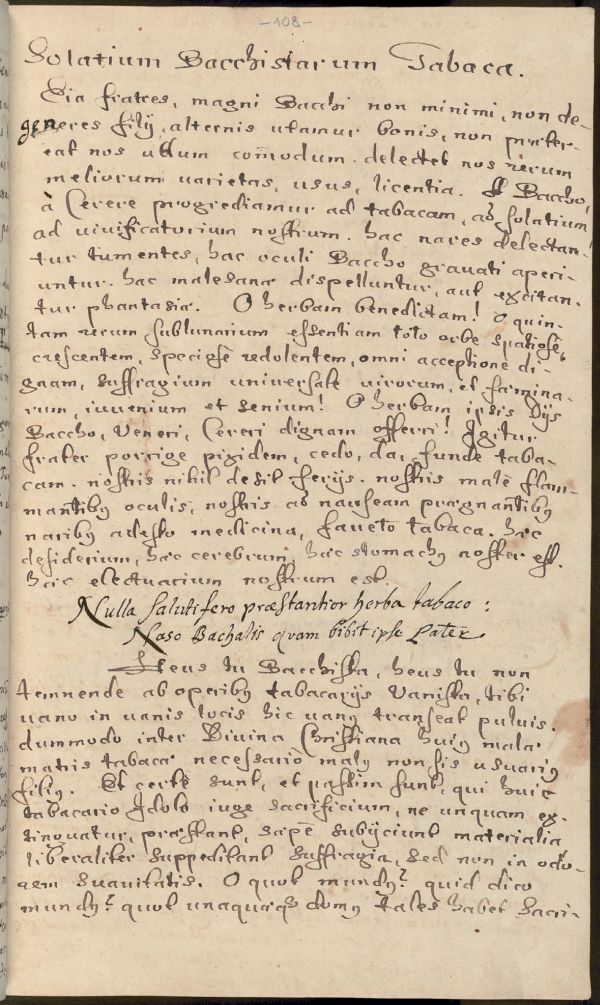 -108-
Solatium Bacchistarum Tabaca.
Eia fratres, magni Bacchi non minimi, non de-
generes filij, alternis utamur bonis, non præter-
eat nos ullum com̃odum. delectet nos rerum
meliorum varietas, usus, licentia. A Baccho,
à Cerere progrediamur ad tabacam, ad solatium
ad vivificatorium nostrum. hac nares delectan-
tur tumentes, hac oculi Baccho gravati aperi-
untur. hac malesanæ dispelluntur, aut excitan-
tur phantasiæ. O herbam benedictam! o quin-
tam rerum sublunarium essentiam toto orbe spatiosè
crescentem, speciosè redolentem, omni acceptione di-
gnam, suffragium universale virorum, et fæmina-
rum, iuvenium et senium! O herbam ipsis Dijs
Baccho, Veneri, Cereri dignam offerri! Igitur
frater porrige pixidem, cedo, da, funde taba-
cam. nostris nihil desit ferijs. nostris malè flam-
mantibꝯ oculis, nostris ad nauseam prægnantibꝯ
naribꝯ adesto medicina, faveto tabaca. hìc
desiderium, hìc cerebrum, hìc stomachꝯ noster est.
hìc electuarium nostrum est.
Nulla salutifero præstantior herba tabaco:
Naso Bachalis qvam bibit ipse Pater
Heus tu Bacchista, heus tu non
temnende ab operibꝯ tabacarijs Vanista, tibi
vano in vanis locis hic vanꝯ transeat pulvis.
dummodo inter Divina Christiana huiꝯ mala
matris tabacæ necessario malꝯ non sis usuariꝯ
filiꝯ. Et certè sunt, et passim sunt, qui huic
tabacario Idolo iuge sacrificium, ne unquam ex-
tinguatur, præstant, sæpè subijciunt materialia,
liberaliter suppeditant suffragia, sed non in odo-
rem suavitatis. O quot mundꝯ? quid dico
mundꝯ? quot unaquæqꝫ domꝯ tales habet sacri-